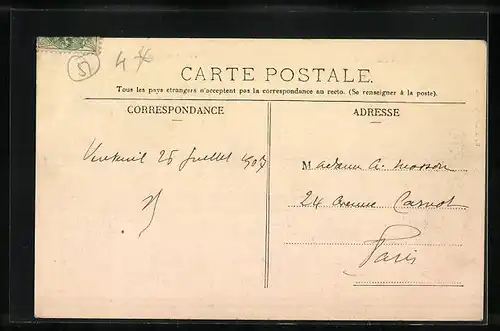 51
4
CARTE POSTALE.
Tous les pays étrangers n'acceptent pas la correspondance au recto. (Se renseigner à la poste).
CORRESPONDANCE
ADRESSE
25 Juillet 1907
Madame A. Masson
24 Avenue Carnot
Paris